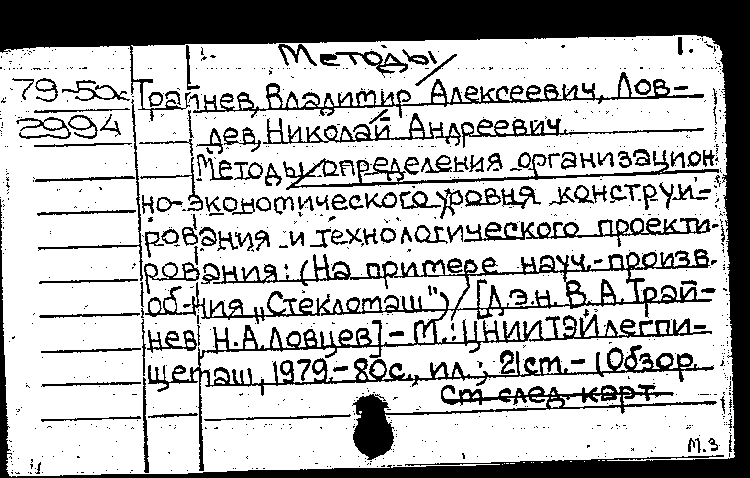 Методы 1.
79-50к Трайнев, Владимир Алексеевич, Лов-
2994 дев, Николай Андреевич.
Методы определения организацион
но-экономического уровня конструи-
рования и технологического проекти-
рования: (На примере науч.-произв.
об-ния „Стекломаш") / [Д.э.н. В. А. Трай-
нев, Н.А. Ловцев] - М.: ЦНИИТЭИлегпи-
щемаш, 1979.-80с., ил.; 21см.-(Обзор.
См след. карт.
М.З